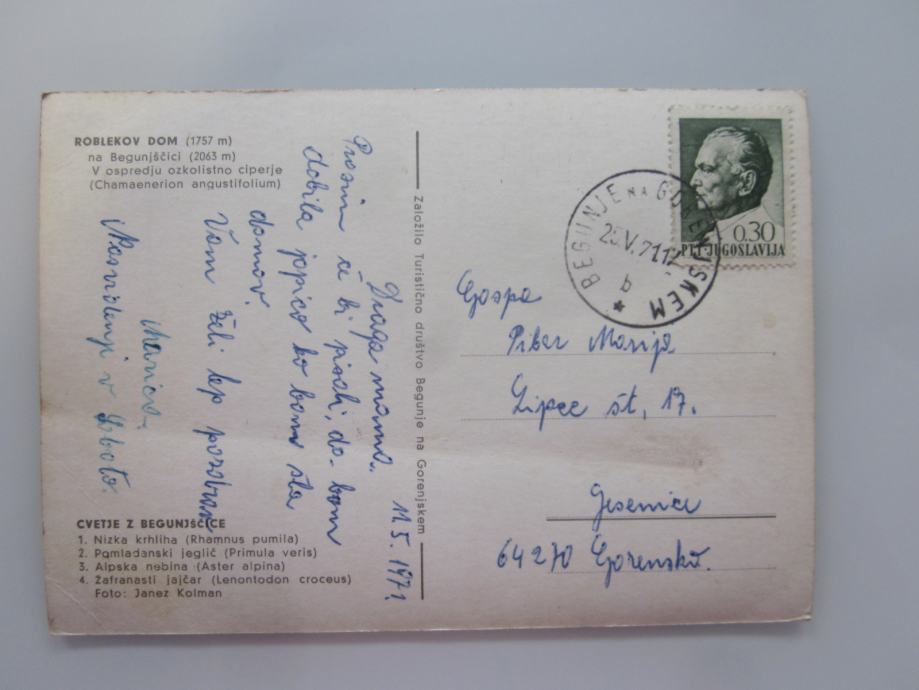 ROBLEKOV DOM (1757 m)
na Begunjščici (2063 m)
V ospredju ozkolistno ciperje
(Chamaenerion angustifolium)
11.5.1971
Draga mama.
Prosim če bi pisali, da bom
dobila jopico ko bom šla
domov.
Vam želi lep pozdrav
Marica.
Nasvidenji v Soboto.
CVETJE Z BEGUNJŠČICE
1. Nizka krhliha (Rhamnus pumila)
2. Pomladanski jeglič (Primula veris)
3. Alpska nebina (Aster alpina)
4. Žafranasti jajčar (Lenontodon croceus)
Foto: Janez Kolman
Založilo Turistično društvo Begunje na Gorenjskem
0.30
PTT-JUGOSLAVIJA
BEGUNJE NA GORENJSKEM
V.71
b
Gospa
Piber Marija
Lipce št. 17.
Jesenice
64270 Gorensko.